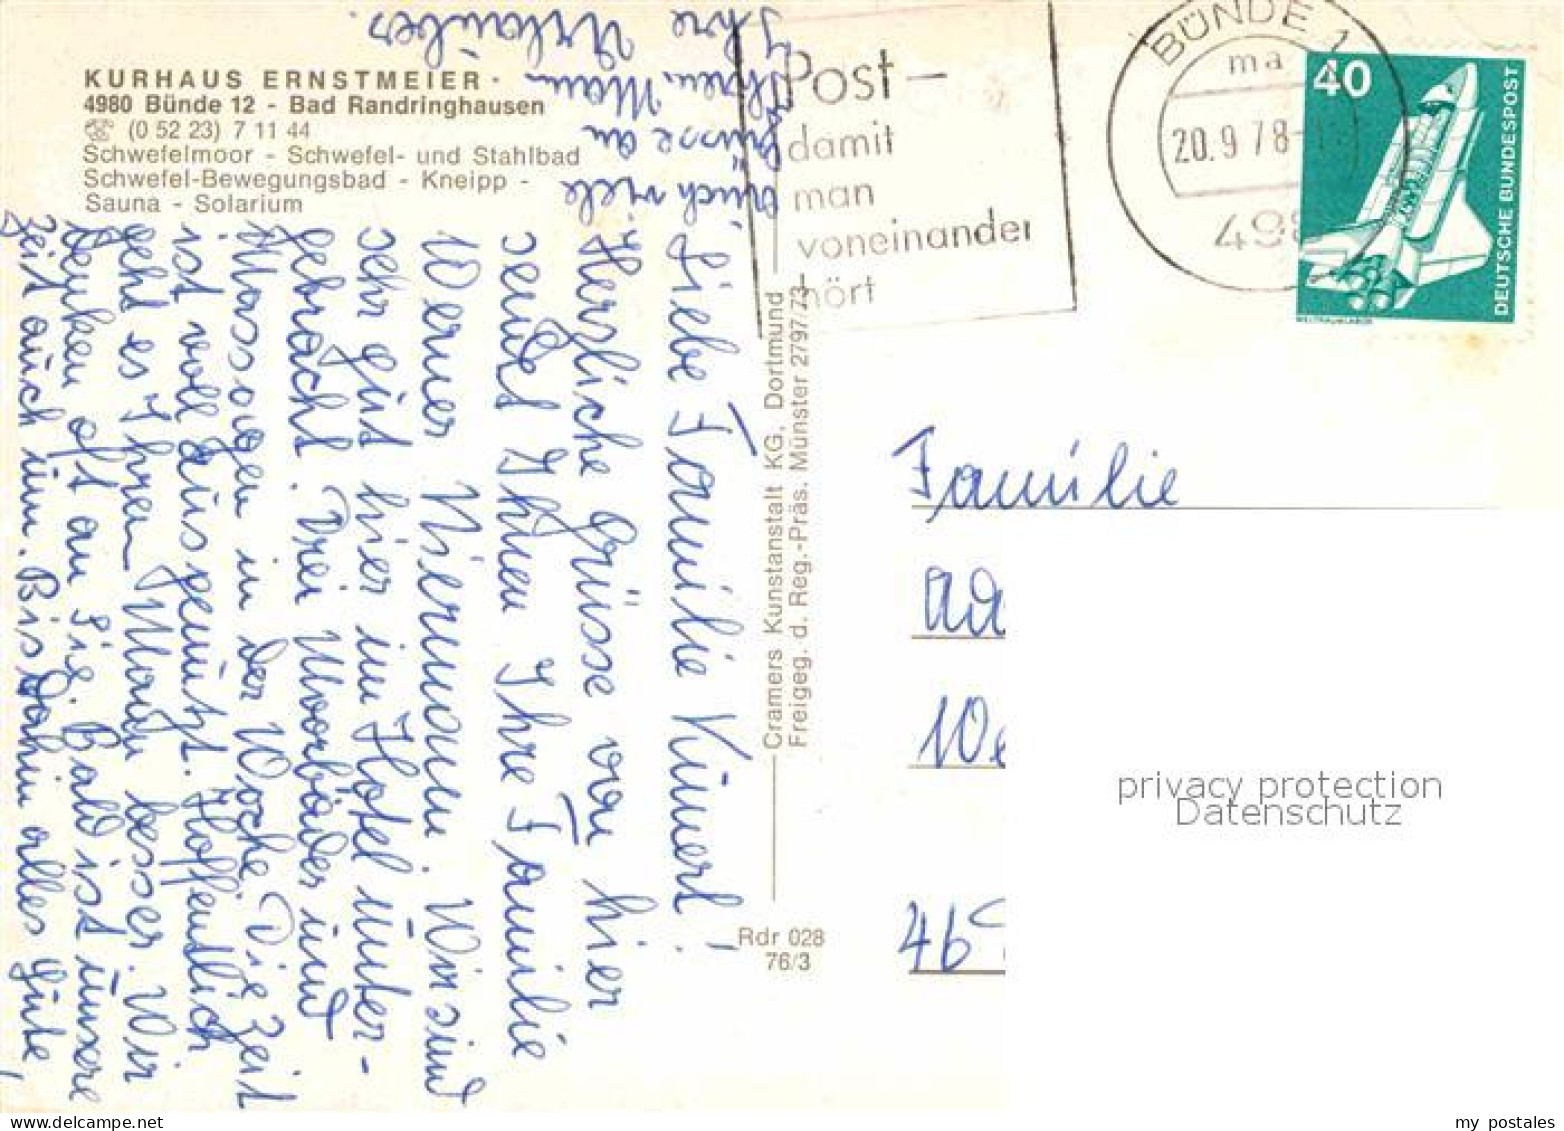 KURHAUS ERNSTMEIER
4980 Bünde 12 - Bad Randringhausen
☏ (0 52 23) 7 11 44
Schwefelmoor - Schwefel- und Stahlbad
Schwefel-Bewegungsbad - Kneipp -
Sauna - Solarium
Liebe Familie Künert!
Herzliche Grüsse von hier
sendet Ihnen Ihre Familie
Werner Niermann. Wir sind
sehr gut hier im Hotel unter-
gebracht. Drei Moorbäder und
Massagen in der Woche. Die Zeit
ist voll ausgenützt. Hoffentlich
geht es Ihrem Mann besser. Wir
denken oft an Sie. Bald ist unsere
Zeit auch um. Bis dahin alles Gute,
auch viele
Grüsse an
Ihren Mann
Ihre Urlauber.
Cramers Kunstanstalt KG, Dortmund
Freigeg. d. Reg.-Präs. Münster 2797/73
Rdr 028
76/3
Post -
damit
man
voneinander
hört
BÜNDE 1
ma
20.9.78
498
40
DEUTSCHE BUNDESPOST
WELTRAUMLABOR
Familie
Ad
We
46
privacy protection
Datenschutz
my postales